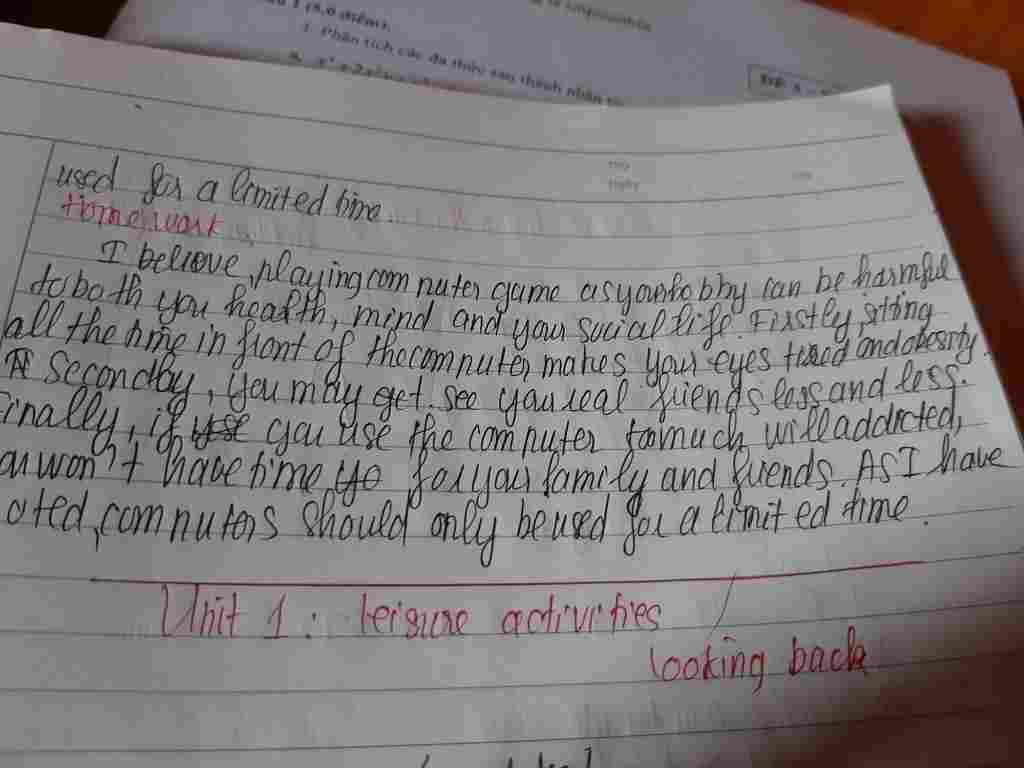 1. Phân tích các đa thức sau thành nhân tử
used for a limited time.
Homework
I believe, playing computer game as your hobby can be harmful
to both you health, mind and your social life. Firstly, sitting
all the time in front of the computer makes your eyes tired and obesity.
Secondly, you may get see you real friends less and less.
Finally, if use you use the computer to much will addicted,
ou won't have time yo for your family and friends. As I have
oted, computers should only be used for a limited time.
Unit 1: leisure activities /
looking back